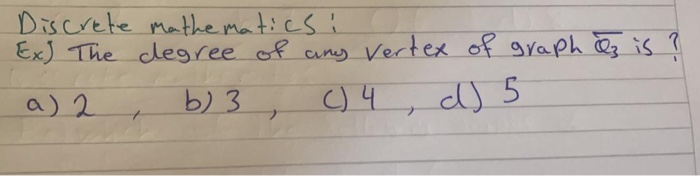 Discrete mathematics:
Ex) The degree of any vertex of graph Q̅₃ is ?
a) 2 , b) 3 , c) 4 , d) 5